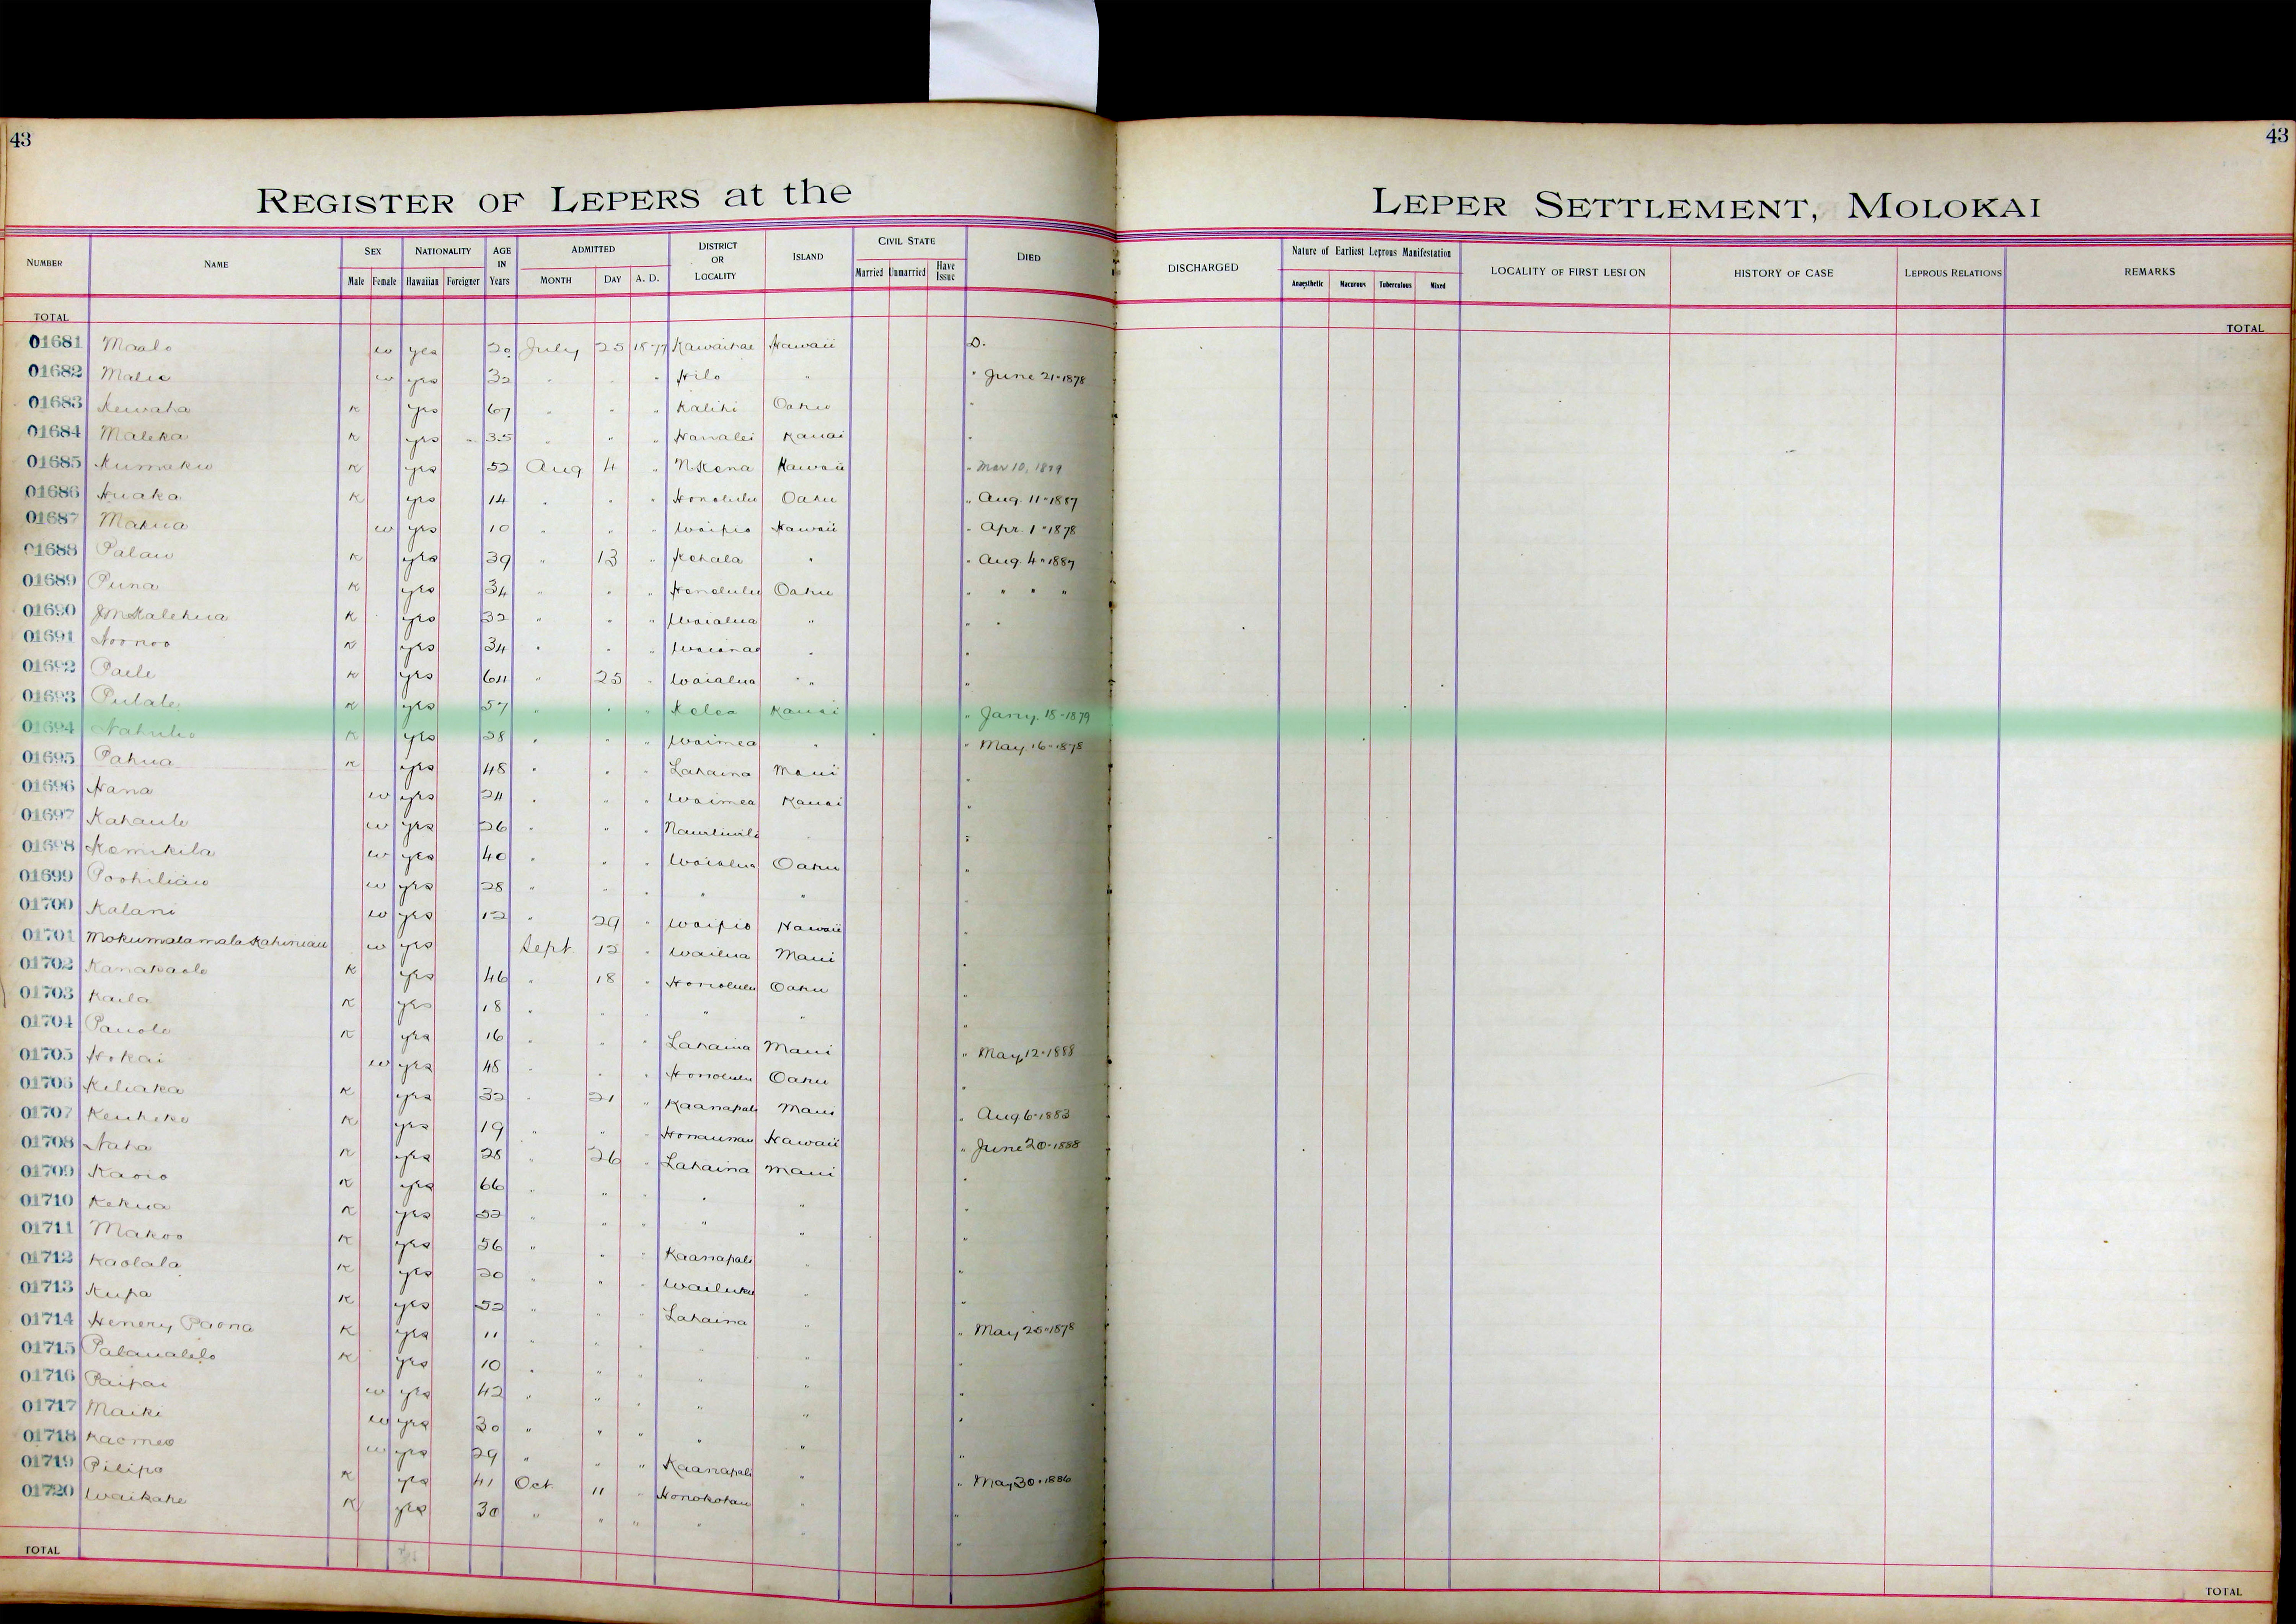 43
43
REGISTER OF LEPERS at the
LEPER SETTLEMENT, MOLOKAI
NUMBER NAME SEX NATIONALITY AGE IN Years ADMITTED DISTRICT OR LOCALITY ISLAND CIVIL STATE DIED
Male Female Hawaiian Foreigner MONTH DAY A. D. Married Unmarried Have Issue
DISCHARGED Nature of Earliest Leprous Manifestation LOCALITY OF FIRST LESION HISTORY OF CASE LEPROUS RELATIONS REMARKS
Anaesthetic Macurous Tuberculous Mixed
TOTAL
TOTAL
01681 Maalo w yes 20 July 25 1877 Kawaihae Hawaii D.
01682 Malie w yes 32 " " " Hilo " " June 21-1878
01683 Kewaha K yes 67 " " " Kalihi Oahu "
01684 Maleka K yes 35 " " " Hanalei Kauai "
01685 Kumaku K yes 52 Aug 4 " N Kona Hawaii " Mar 10, 1879
01686 Huaka K yes 14 " " " Honolulu Oahu " Aug. 11-1887
01687 Mahua w yes 10 " " " Waipio Hawaii " Apr. 1-1878
01688 Palau K yes 39 " 13 " Kohala " " Aug. 4-1887
01689 Puna K yes 34 " " " Honolulu Oahu " " " "
01690 J M Kalehua K yes 32 " " " Waialua " " "
01691 Noonoo K yes 34 " " " Waianae " "
01692 Paele K yes 64 " 25 " Waialua " "
01693 Pulale K yes 57 " " " Kolea Kauai " Jany. 18-1879
01694 Nahulu K yes 28 " " " Waimea " " May 16-1878
01695 Pahua K yes 48 " " " Lahaina Maui "
01696 Hana w yes 24 " " " Waimea Kauai "
01697 Kahaule w yes 26 " " " Nawiliwili "
01698 Kamikila w yes 40 " " " Waialua Oahu "
01699 Poohiliau w yes 28 " " " " "
01700 Kalani w yes 12 " 29 " Waipio Hawaii "
01701 Mokumalamala Kahiniau w yes Sept 12 " Wailua Maui "
01702 Kanakaole K yes 46 " 18 " Honolulu Oahu "
01703 Kaila K yes 18 " " " " " "
01704 Pauole K yes 16 " " " Lahaina Maui " May 12-1888
01705 Hokai w yes 48 " " " Honolulu Oahu "
01706 Keliaka K yes 32 " 21 " Kaanapali Maui " Aug 6-1883
01707 Keuheke K yes 19 " " " Honaunau Hawaii " June 20-1888
01708 Naha K yes 28 " 26 " Lahaina Maui "
01709 Kaoio K yes 66 " " " " " "
01710 Kekua K yes 52 " " " " " "
01711 Makoo K yes 56 " " " Kaanapali " "
01712 Kaolala K yes 20 " " " Wailuku " "
01713 Kupa K yes 52 " " " Lahaina "
01714 Henery Paona K yes 11 " " " " " " May 25-1878
01715 Palaualelo K yes 10 " " " " " "
01716 Paipai w yes 42 " " " " " "
01717 Maiki w yes 30 " " " " " "
01718 Kaomea w yes 29 " " " Kaanapali " "
01719 Pilipo K yes 41 Oct 11 " Honokohau " " May 30-1886
01720 Waikahe K yes 30 " " " " " "
TOTAL
TOTAL